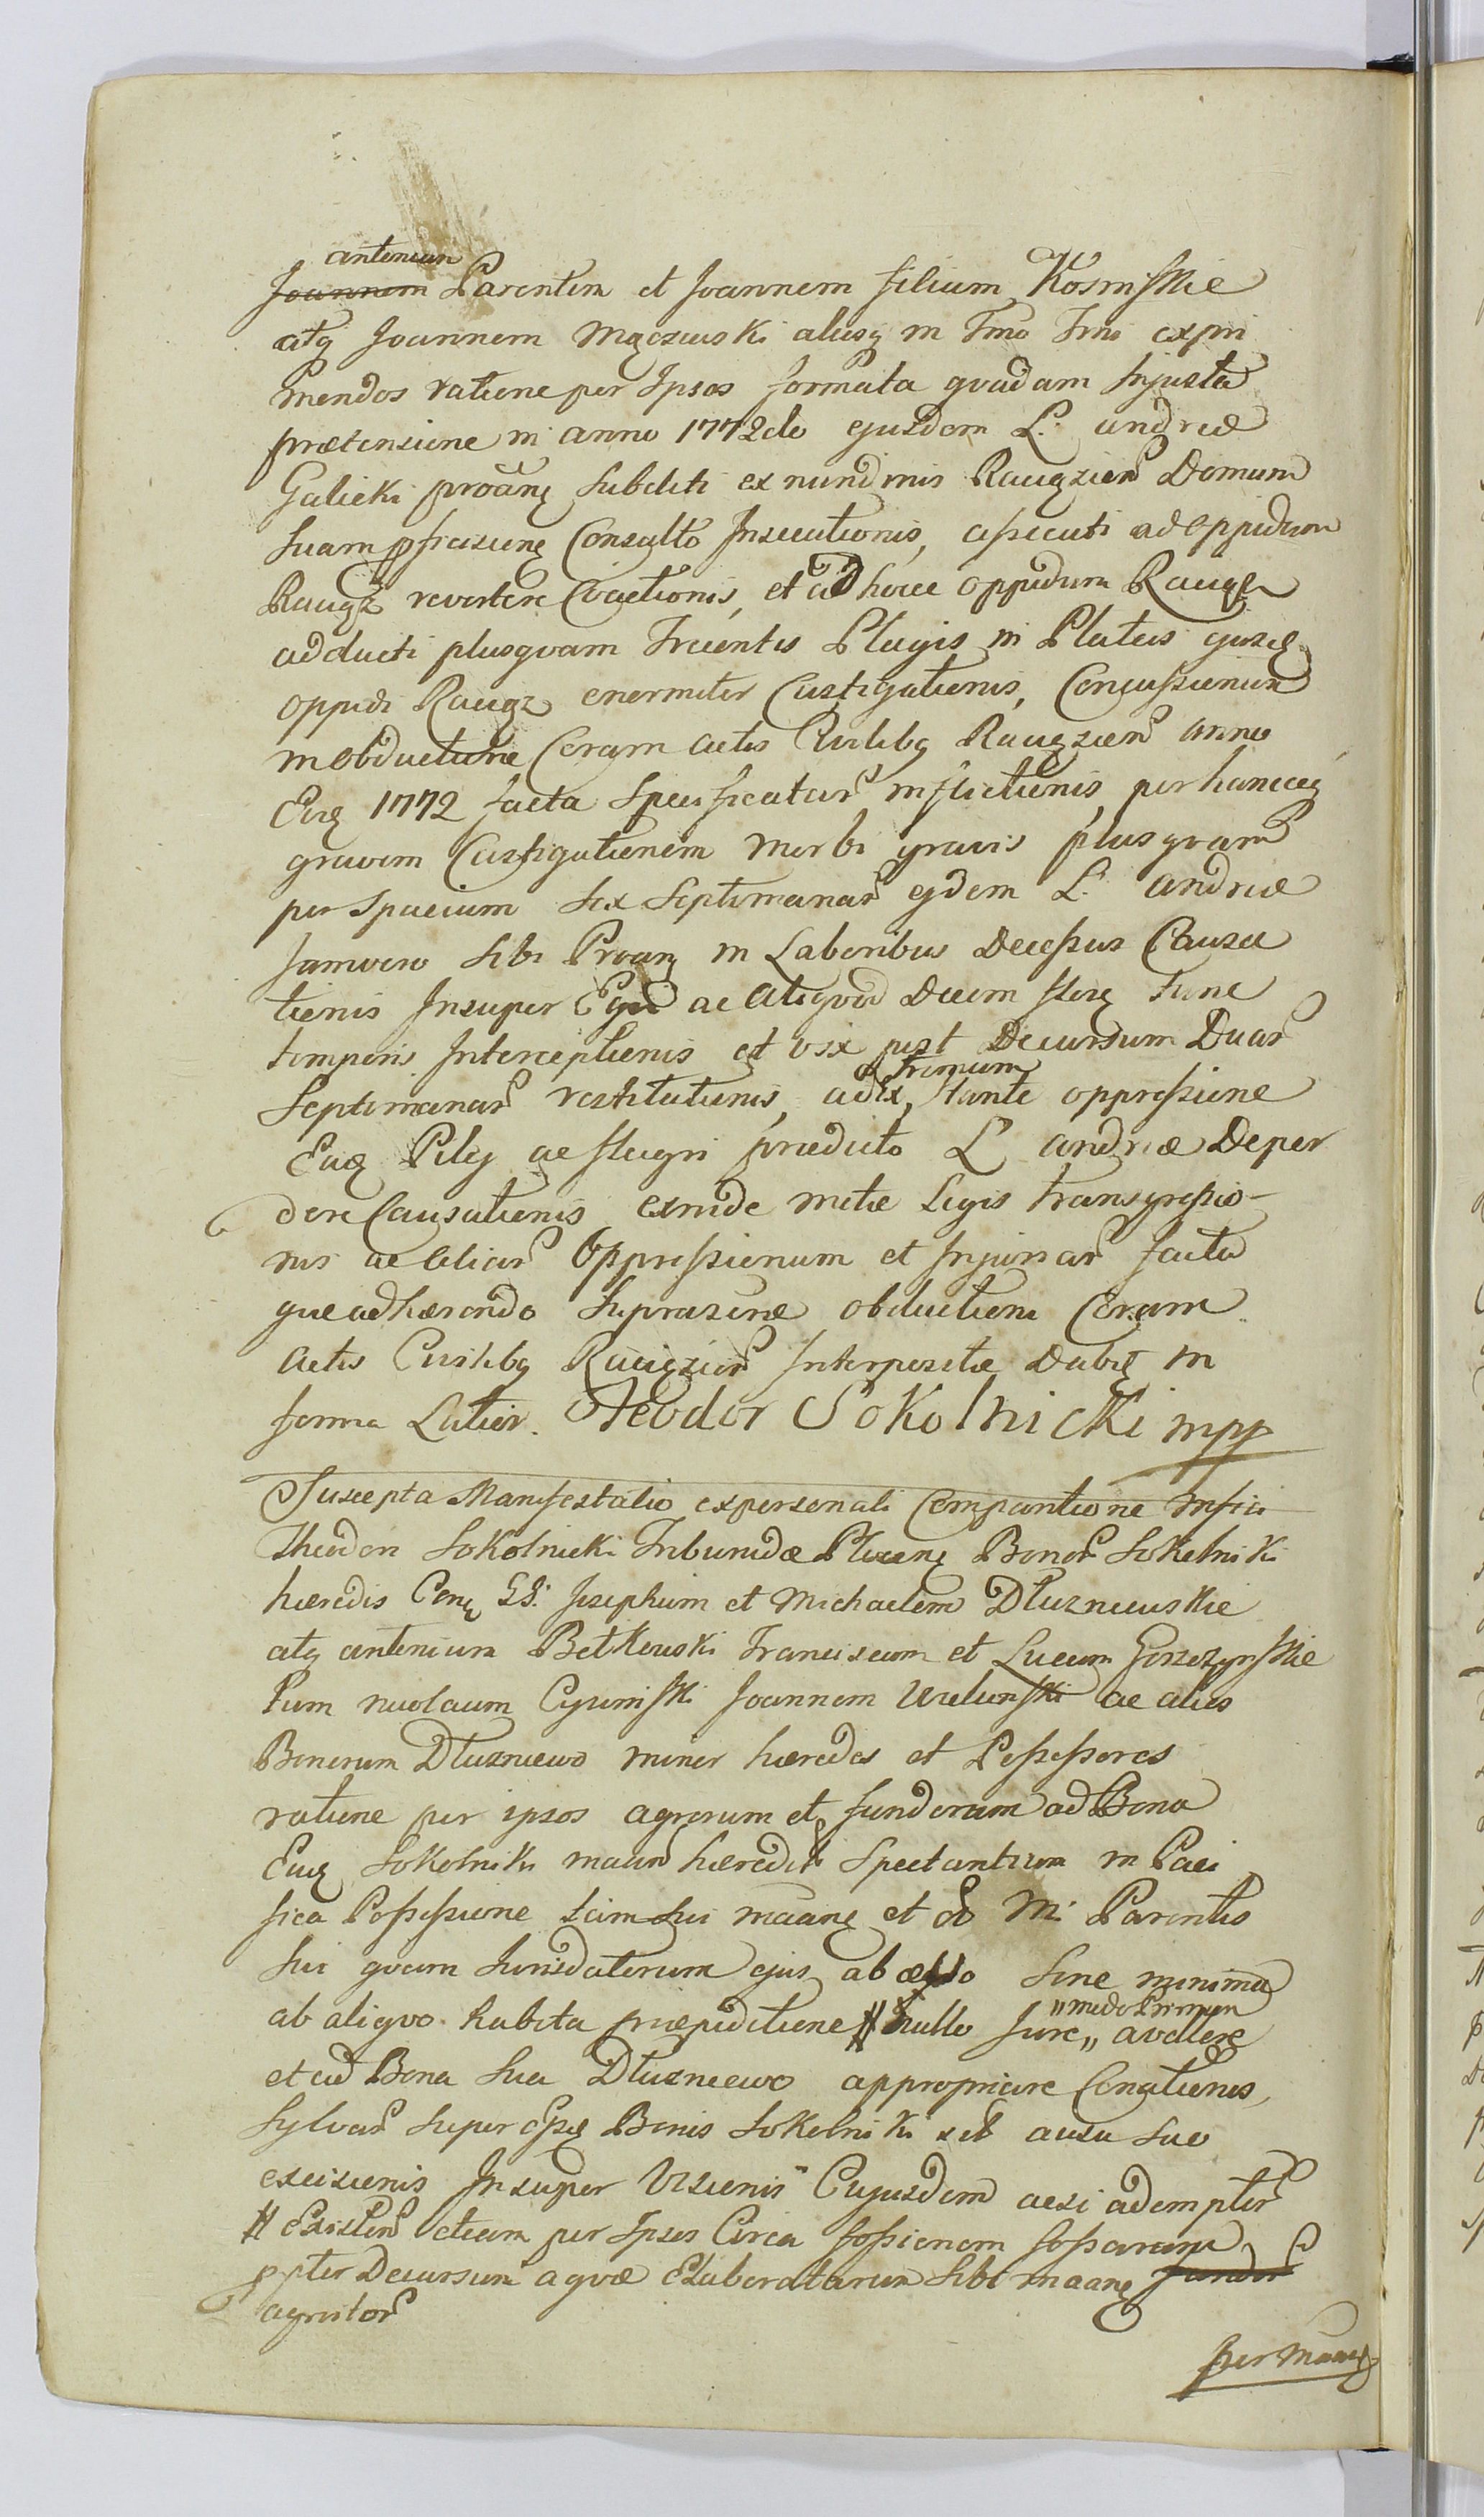 antonium
Joannem Parentem et Joannem filium Kosinskie
atq Joannem Mączewski aliosq in Tmo Tmi expri
mendos ratione per Ipsos formata quadam Injusta
prætensione in anno 1772do ejusdem L. andreæ
Galicki proãnę Subditi ex nundinis Raciązien Domum
Suam pficiscinę Consulto Insecutionis, assecuti ad oppidum
Raciąz revertere Coactionis, et ad hocce oppidum Raciąz
adducti plusquam Trecentis Plagis in Plateis ejusdę
oppidi Raciąz enormiter Castigationis, Concussionum
in obductione Coram actis Civilibq Raciązien anno
Eoq 1772 facta Specificatar inflictionis, per hancceq
gravem Castigationem Morbi gravis plusquam
per Spacium Sex Septimanar ejdem L. andreæ
Jamvero Sibi Proanę in Laboribus Decessus Causa
tionis Insuper Equi ac aliquod Decem flore tunc
temporis Interceptionis et vix post Decursum Duar
Trimum
Septimanar restitutionis, adex, stante oppressione
Eaq Pilej ac flagri prædicto L. andreæ Deper
dere Causationis exinde metæ Legis transgressio-
nis ac aliar Oppressionum et Injuriar facta
que adhærendo Suprascriæ obductioni Coram
actis Civilibq Raciązien Interpositæ Dabit in
forma Latior. Teodor Sokolnicki mpp
Suscepta Manifestatio ex personali Comparitione Mfici
Theodori Sokolnicki Tribunidæ Plocenę Bonor Sokolniki
hæredis Conę GG. Josephum et Michaelem Dłuzniewskie
atq antonium Betkowski Franciscum et Lucam Gorszczynskie
tum nicolaum Cyviniski Joannem Wielunski ac alios
Bonorum Dłuzniewo minor hæredes et Possessores
ratione per ipsos agrorum et fundorum ad Bona
Euq Sokolniki maan hæredit Spectantium in Paci
fica Possessione tam Sui maanę et M. Parentis
Sui quam Jurisdatorum ejus ab ævo Sine minima
"modo Primum
ab aliquo habita præpeditione # nullo Jure „ avellere
et ad Bona Sua Dłuzniewo appropriare Conationis,
Sylvar Super ejsdę Bonis Sokolniki sub ausu suo
excisionis Insuper Visionis Cujusdem aesi ademptor
# Existen etiam per Ipsos Circa fossionem fossarum
ppter Decursum aquæ Elaboratarum Sibi maanę fundor
agrotor
per Maanę